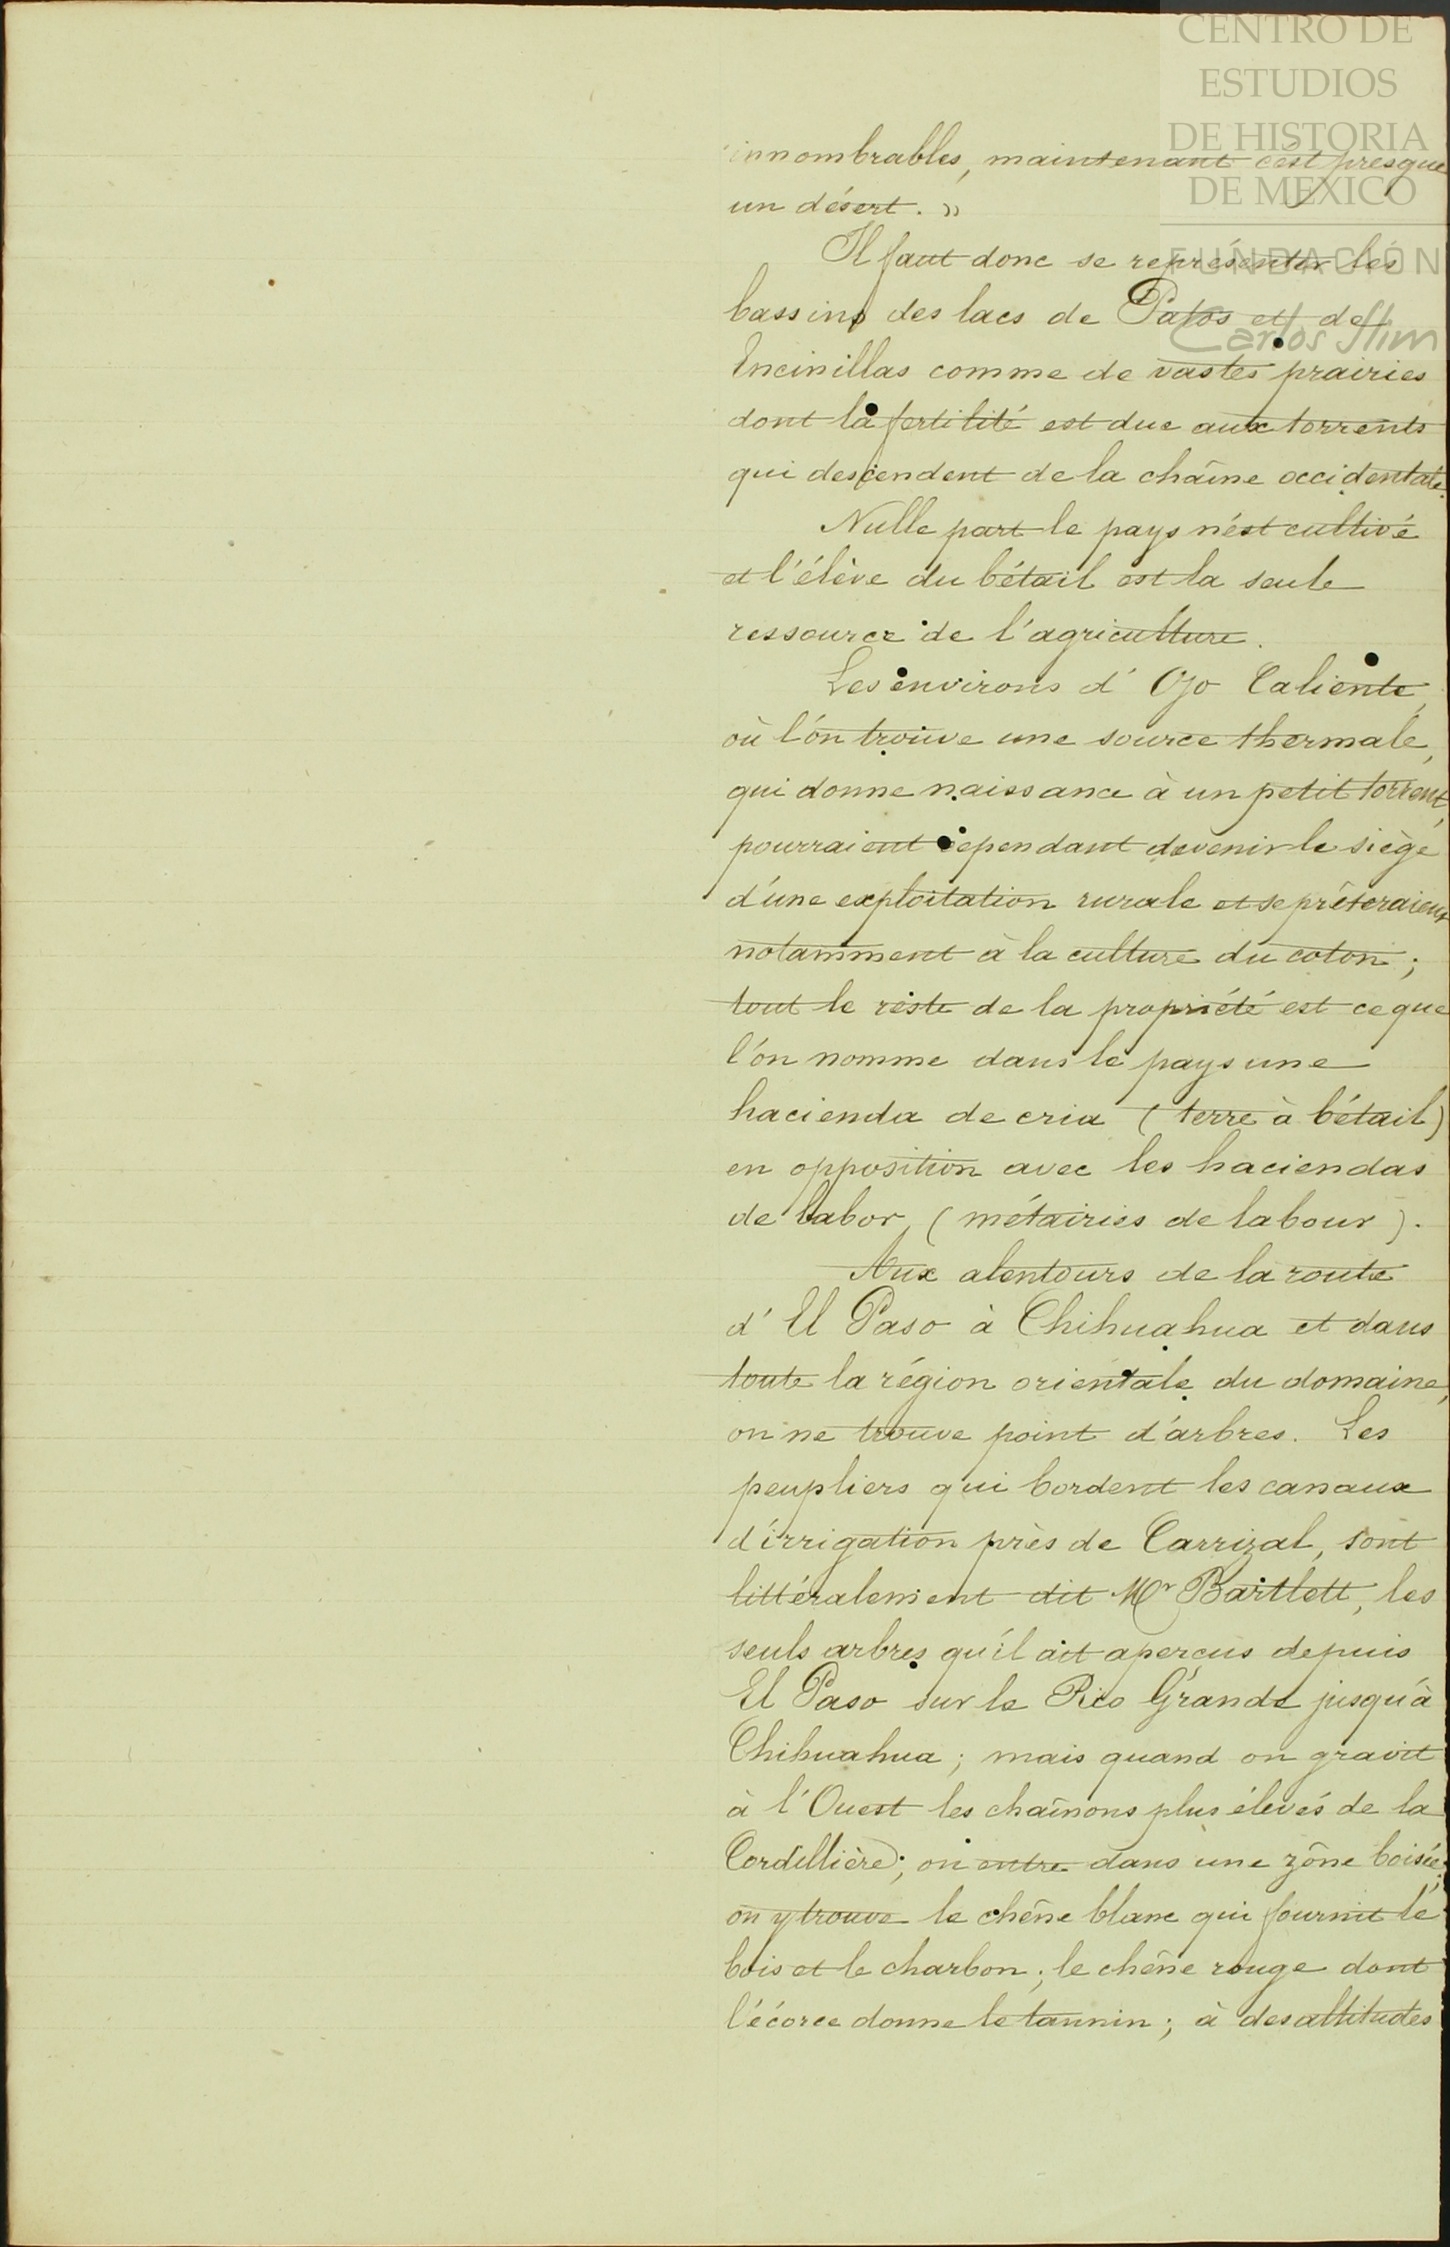 CENTRO DE
ESTUDIOS
DE HISTORIA
DE MEXICO
FUNDACIÓN
Carlos Slim
innombrables, maintenant c'est presque
un désert. »
Il faut donc se représenter les
bassins des lacs de Patos et de
Encinillas comme de vastes prairies
dont la fertilité est due aux torrents
qui descendent de la chaîne occidentale.
Nulle part le pays n'est cultivé
et l'élève du bétail est la seule
ressource de l'agriculture.
Les environs d'Ojo Caliente,
où l'on trouve une source thermale,
qui donne naissance à un petit torrent,
pourraient cependant devenir le siège
d'une exploitation rurale et se prêteraient
notamment à la culture du coton ;
tout le reste de la propriété est ce que
l'on nomme dans le pays une
hacienda de cria (terre à bétail)
en opposition avec les haciendas
de labor, (métairies de labour).
Aux alentours de la route
d'El Paso à Chihuahua et dans
toute la région orientale du domaine,
on ne trouve point d'arbres. Les
peupliers qui bordent les canaux
d'irrigation près de Carrizal, sont
littéralement dit Mr Bartlett, les
seuls arbres qu'il ait apercus depuis
El Paso sur le Rio Grande jusqu'à
Chihuahua ; mais quand on gravit
à l'Ouest les chaînons plus élevés de la
Cordillière ; on entre dans une zône boisée ;
on y trouve le chêne blanc qui fournit le
bois et le charbon ; le chêne rouge dont
l'écorce donne le tannin ; à des altitudes